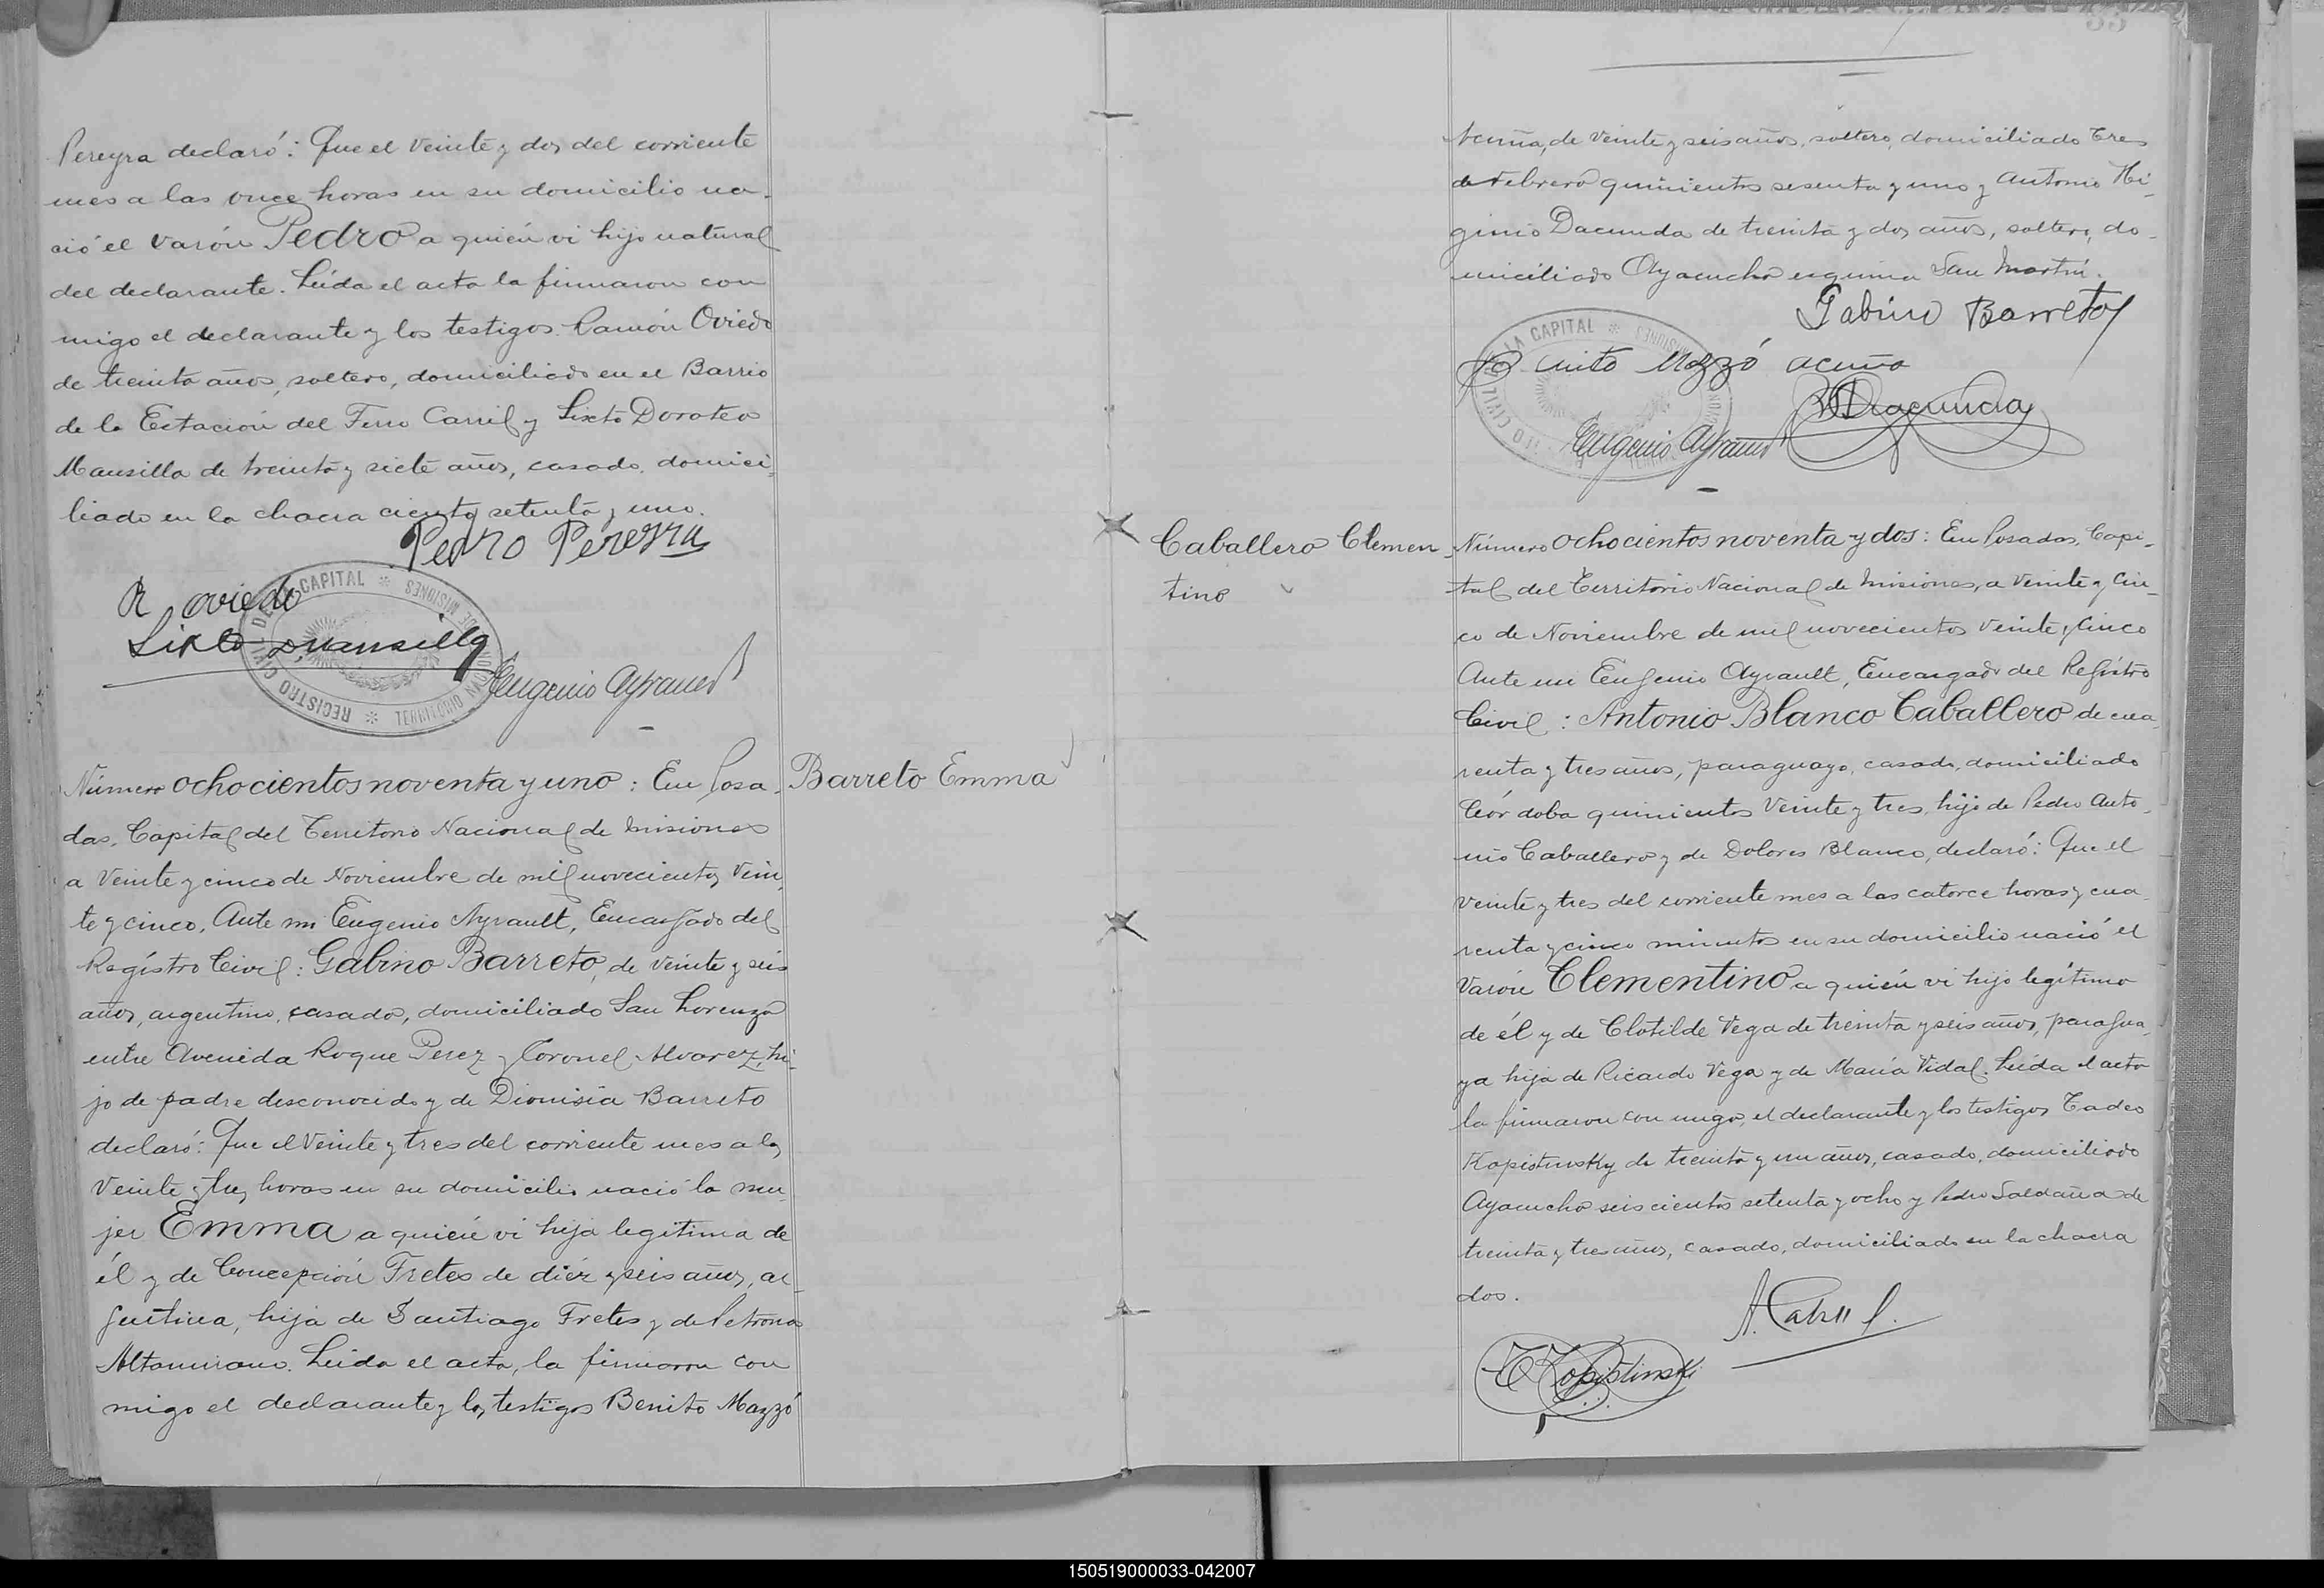 Pereyra declaró: Que el veinte y dos del corriente
mes a las once horas en su domicilio na-
ció el varón Pedro a quién vi hijo natural
del declarante. Leída el acta la firmaron con
migo el declarante y los testigos Ramón Oviedo
de treinta años, soltero, domiciliado en el Barrio
de la Estación del Ferro Carril y Sixto Doroteo
Mansilla de treinta y siete años, casado, domici-
liado en la chacra ciento setenta y uno.
Pedro Pereyra
R oviedo
Sixto Mansilla
REGISTRO CIVIL DE LA CAPITAL * TERRITORIO NACIONAL DE MISIONES *
Eugenio Ayrault
Barreto Emma
Número ochocientos noventa y uno: En Posa-
das, Capital del Territorio Nacional de Misiones
a veinte y cinco de Noviembre de mil novecientos vein-
te y cinco, Ante mi Eugenio Ayrault, Encargado del
Registro Civil: Gabino Barreto, de veinte y seis
años, argentino, casado, domiciliado San Lorenzo
entre Avenida Roque Perez y Coronel Alvarez, hi-
jo de padre desconocido y de Dionisia Barreto
declaró: Que el veinte y tres del corriente mes a las
veinte y tres horas en su domicilio nació la mu-
jer Emma a quién vi hija legitima de
él y de Concepción Fretes de diéz y seis años, ar-
gentina, hija de Santiago Fretes y de Petrona
Altamirano. Leída el acta, la firmaron con
migo el declarante y los testigos Benito Mazzó
Acuña, de veinte y seis años, soltero, domiciliado Tres
de Febrero quinientos sesenta y uno y Antonio Hi-
ginio Dacunda de treinta y dos años, soltero, do-
miciliado Ayacucho esquina San Martín.
Gabino Barreto
Benito Mazzó acuña
Dacunda
Eugenio Ayrault
Caballero Clemen-
tino
Número ochocientos noventa y dos: En Posadas, Capi-
tal del Territorio Nacional de Misiones, a veinte y cin-
co de Noviembre de mil novecientos veinte y cinco
Ante mi Eugenio Ayrault, Encargado del Registro
Civil: Antonio Blanco Caballero de cua-
renta y tres años, paraguayo, casado, domiciliado
Córdoba quinientos veinte y tres, hijo de Pedro Anto-
nio Caballero y de Dolores Blanco, declaró: Que el
veinte y tres del corriente mes a las catorce horas y cua-
renta y cinco minutos en su domicilio nació el
varón Clementino a quién vi hijo legítimo
de él y de Clotilde Vega de treinta y seis años, paragua-
ya hija de Ricardo Vega y de María Vidal. Leída el acta
la firmaron con migo, el declarante y los testigos Tadeo
Kopistinsky de treinta y un años, casado, domiciliado
Ayacucho seiscientos setenta y ocho y Pedro Saldaña de
treinta y tres años, casado, domiciliado en la chacra
dos.
T Kopistinski
150519000033-042007